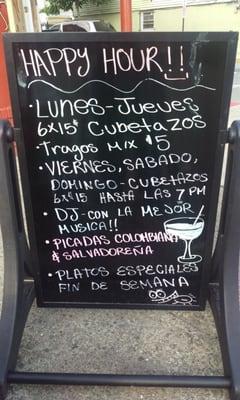 HAPPY HOUR!!
• LUNES-JUEVES
6x15$ CUBETAZOS
• TRAGOS MIX $5
• VIERNES, SABADO,
DOMINGO-CUBETAZOS
6x$15 HASTA LAS 7 PM
• DJ-CON LA MEJOR
MUSICA!!
• PICADAS COLOMBIANA
& SALVADOREÑA
• PLATOS ESPECIALES
FIN DE SEMANA